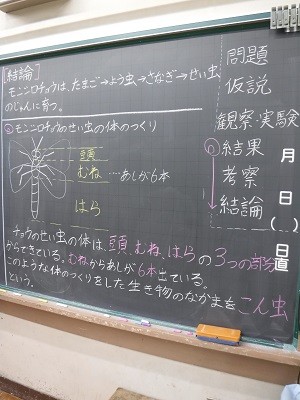 [結論]
モンシロチョウは、たまご→よう虫→さなぎ→せい虫
のじゅんに育つ。
モンシロチョウのせい虫の体のつくり
頭
むね …あしが6本
はら
チョウのせい虫の体は、頭、むね、はらの3つの部分
からできている。むねからあしが6本出ている。
このような体のつくりをした生き物のなかまをこん虫
という。
問題
仮説
観察・実験
結果
考察
結論
月
日
( )
日直